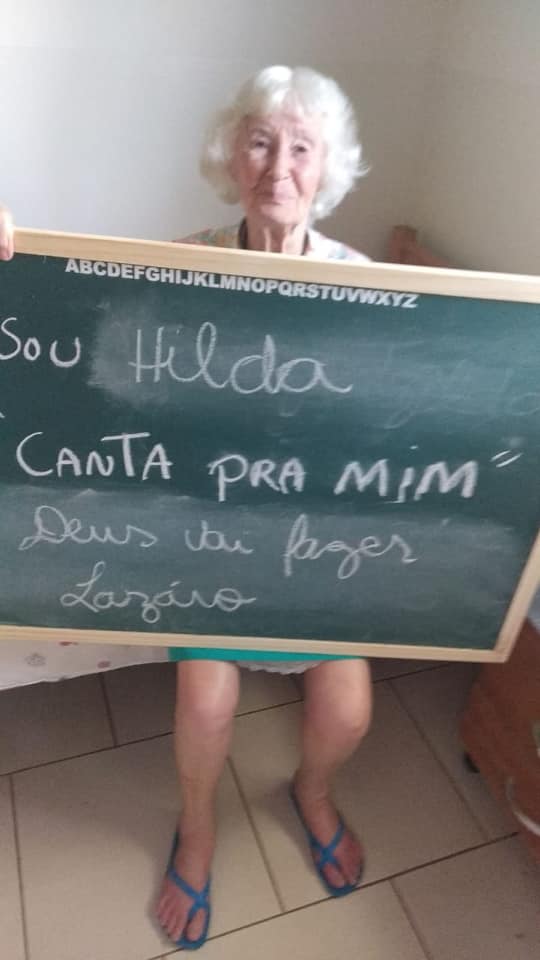 ABCDEFGHIJKLMNOPQRSTUVWXYZ
SOU Hilda
"CANTA PRA MIM"
Deus vai fazer
Lazáro